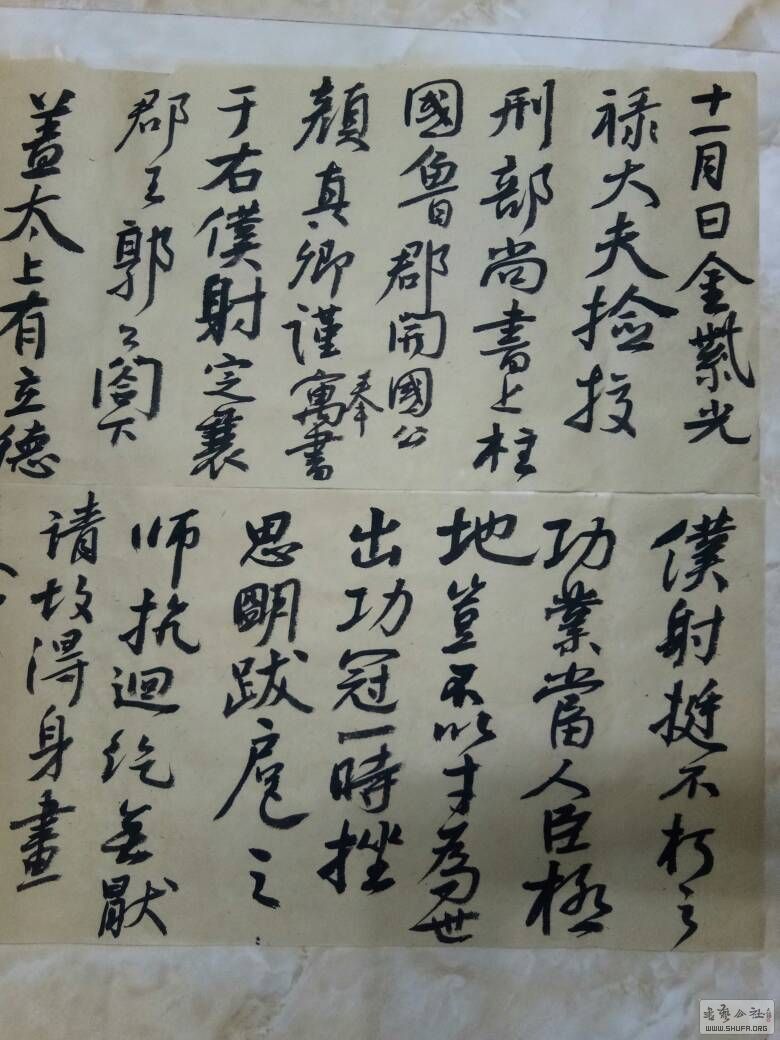 十一月日金紫光
禄大夫撿挍
刑部尚書上柱
國魯郡開國公
顔真卿謹奉寓書
于右僕射定襄
郡王郭公閤下
蓋太上有立德
僕射挺不朽之
功業當人臣極
地豈不以才為世
出功冠一時挫
思明跋扈之
师抗迴紇無厭
请故得身畫
書藝公社
WWW.SHUFA.ORG